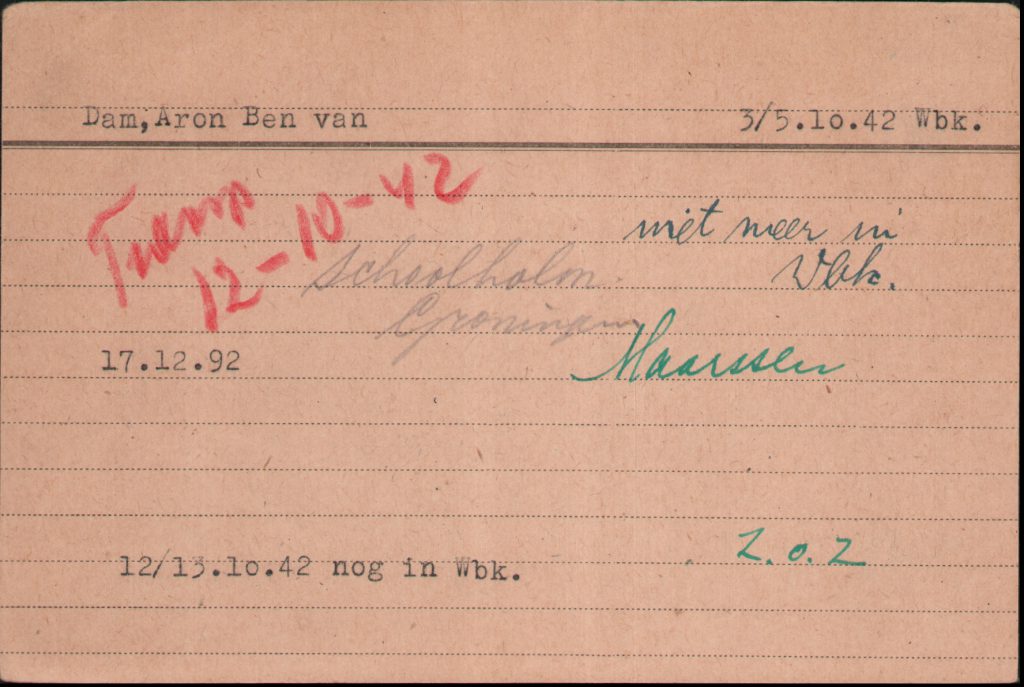 Dam, Aron Ben van 3/5.10.42 Wbk.
Transp
12-10-42
niet meer in
Wbk.
Schoolholm.
Groningen
17.12.92
Maarssen
12/13.10.42 nog in Wbk.
Z.o.Z